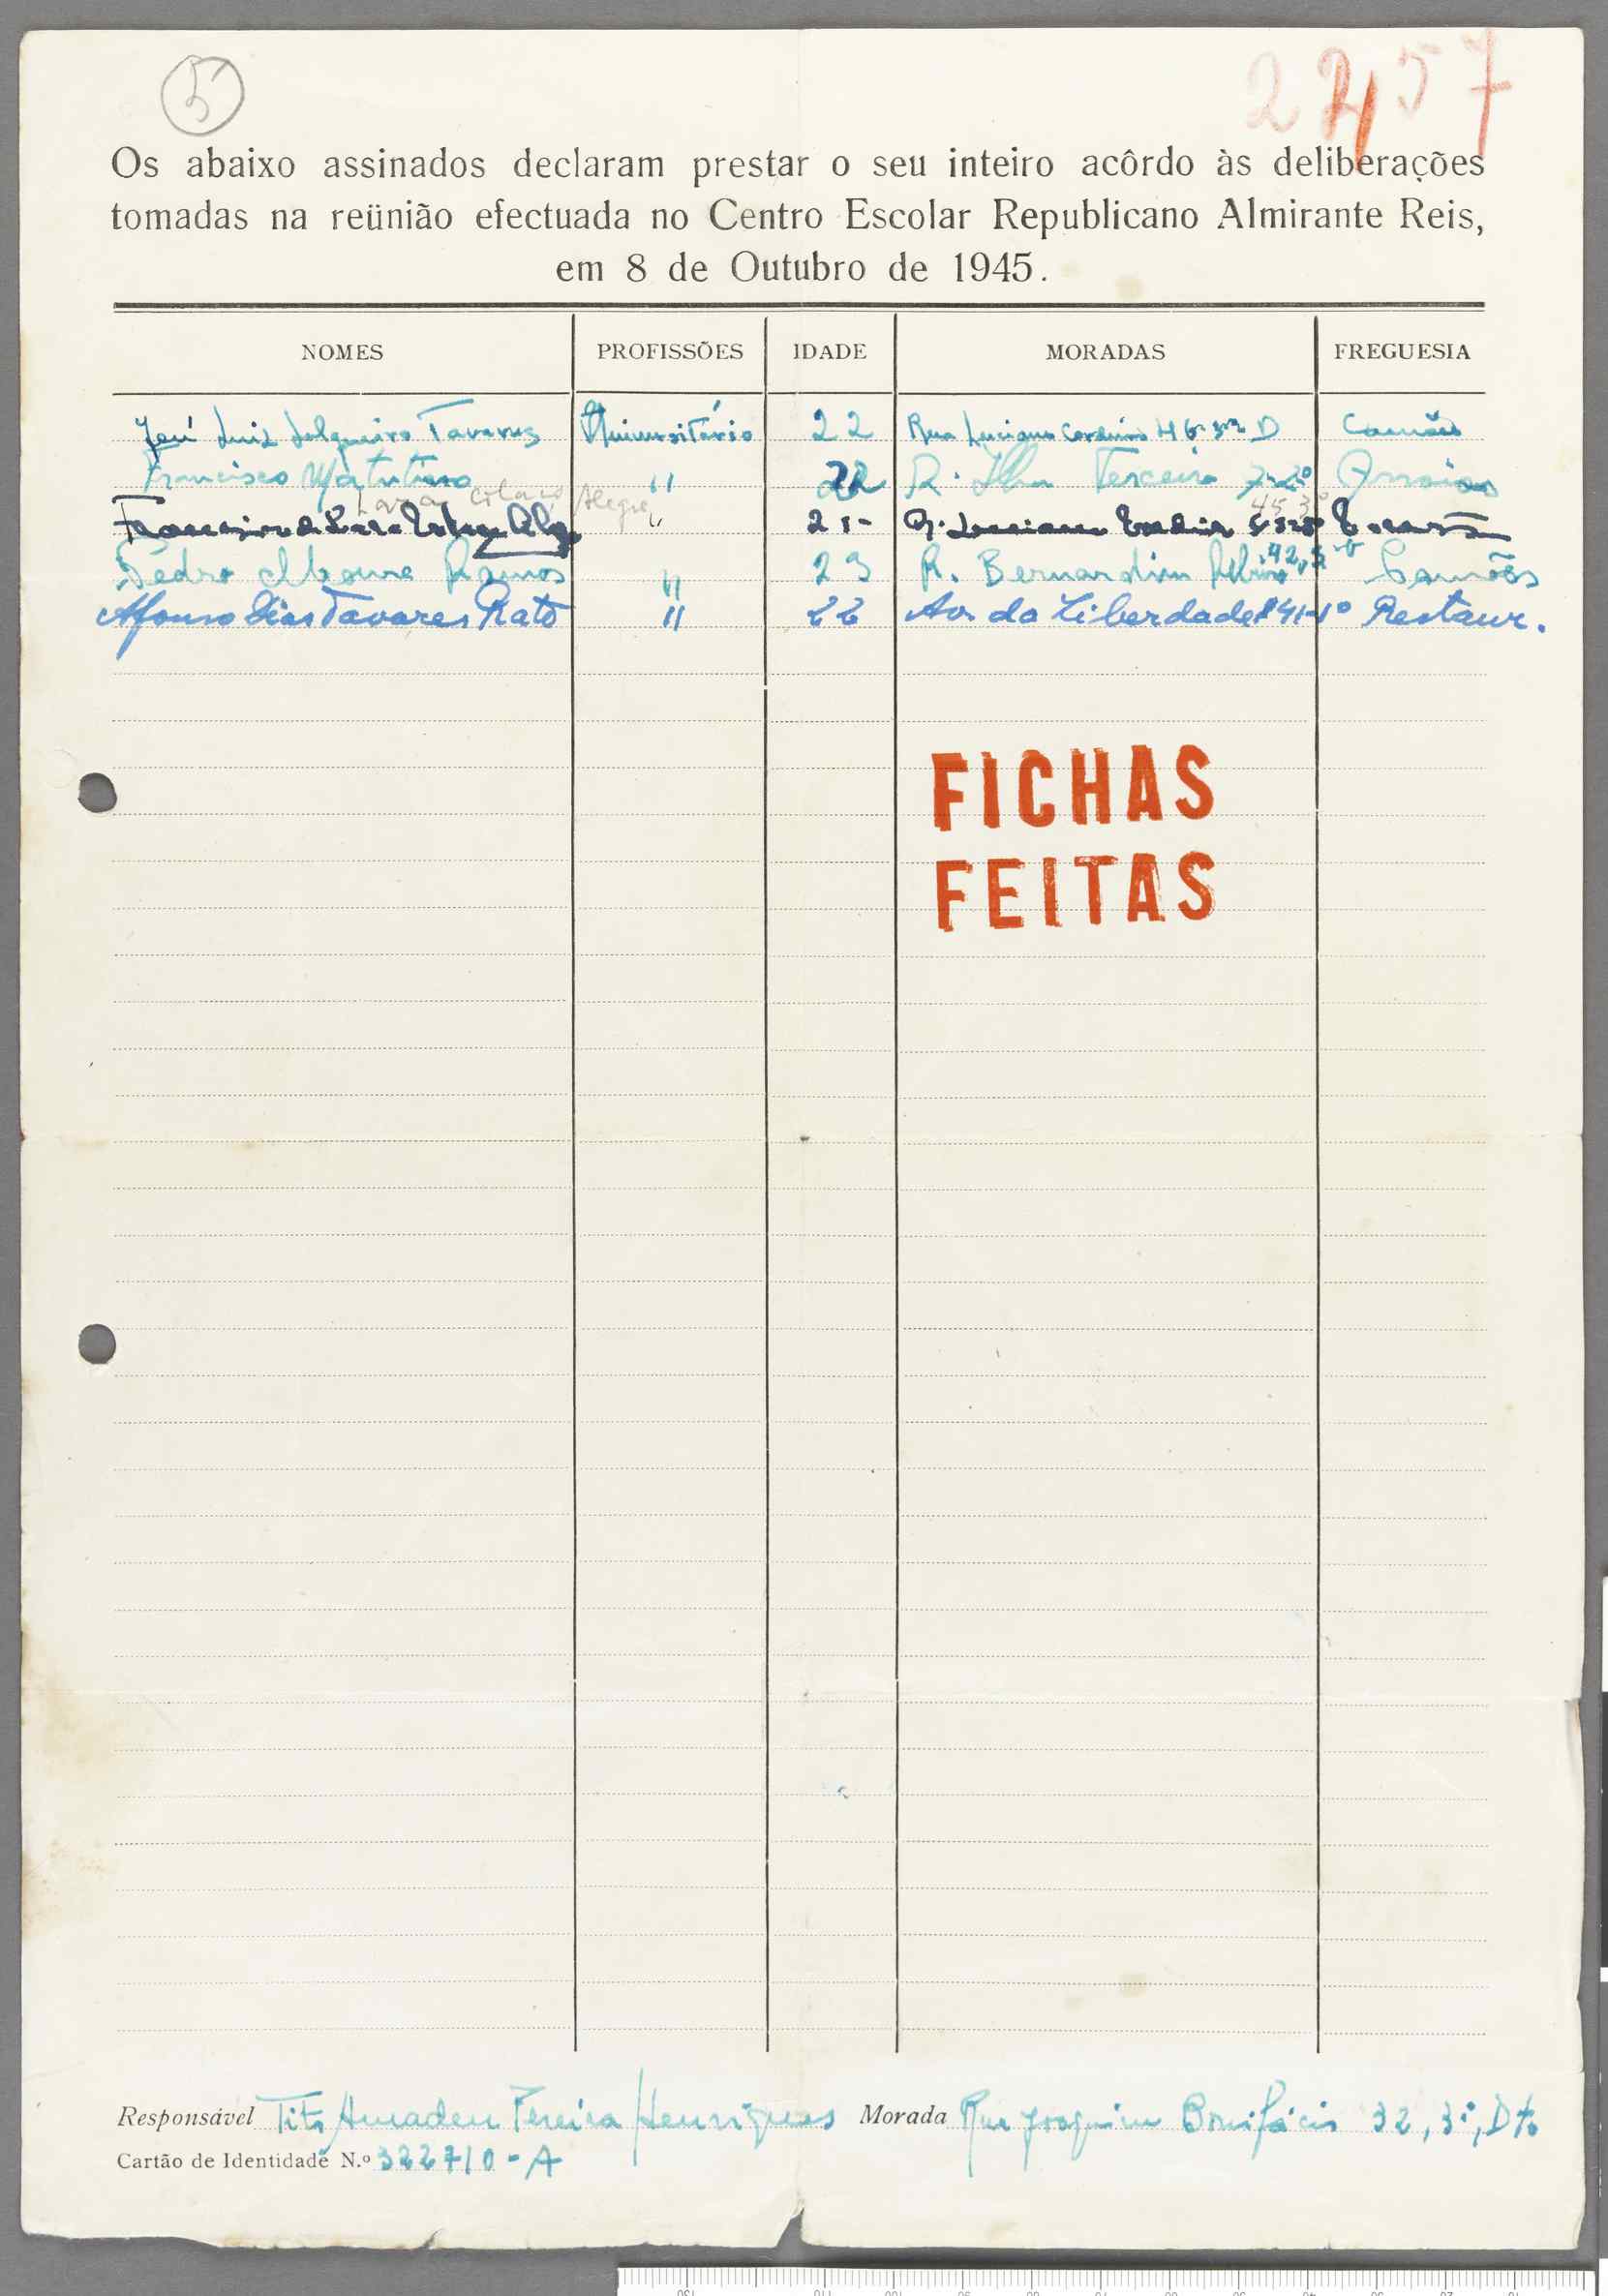 5
2257
Os abaixo assinados declaram prestar o seu inteiro acôrdo às deliberações
tomadas na reünião efectuada no Centro Escolar Republicano Almirante Reis,
em 8 de Outubro de 1945.
NOMES PROFISSÕES IDADE MORADAS FREGUESIA
José Luiz Salgueiro Tavares Universitário 22 Rua Luciano Cordeiro 46-3º D Camões
Francisco Matutino " 22 R. Ilha Terceira Arroios
Lara Colaço Alegre 45 3º
Francisco de Lara " 21- R. Luciano Cordeiro Camões
Pedro Moura Ramos " 23 R. Bernardim Ribeiro 42, Camões
Afonso Dias Tavares Rato " 22 Av. da Liberdade 141-1º Restaur.
FICHAS
FEITAS
Responsável Tito Amadeu Pereira Henriques Morada Rua Joaquim Bonifácio 32, 3º, Dto
Cartão de Identidade N.º 322710-A